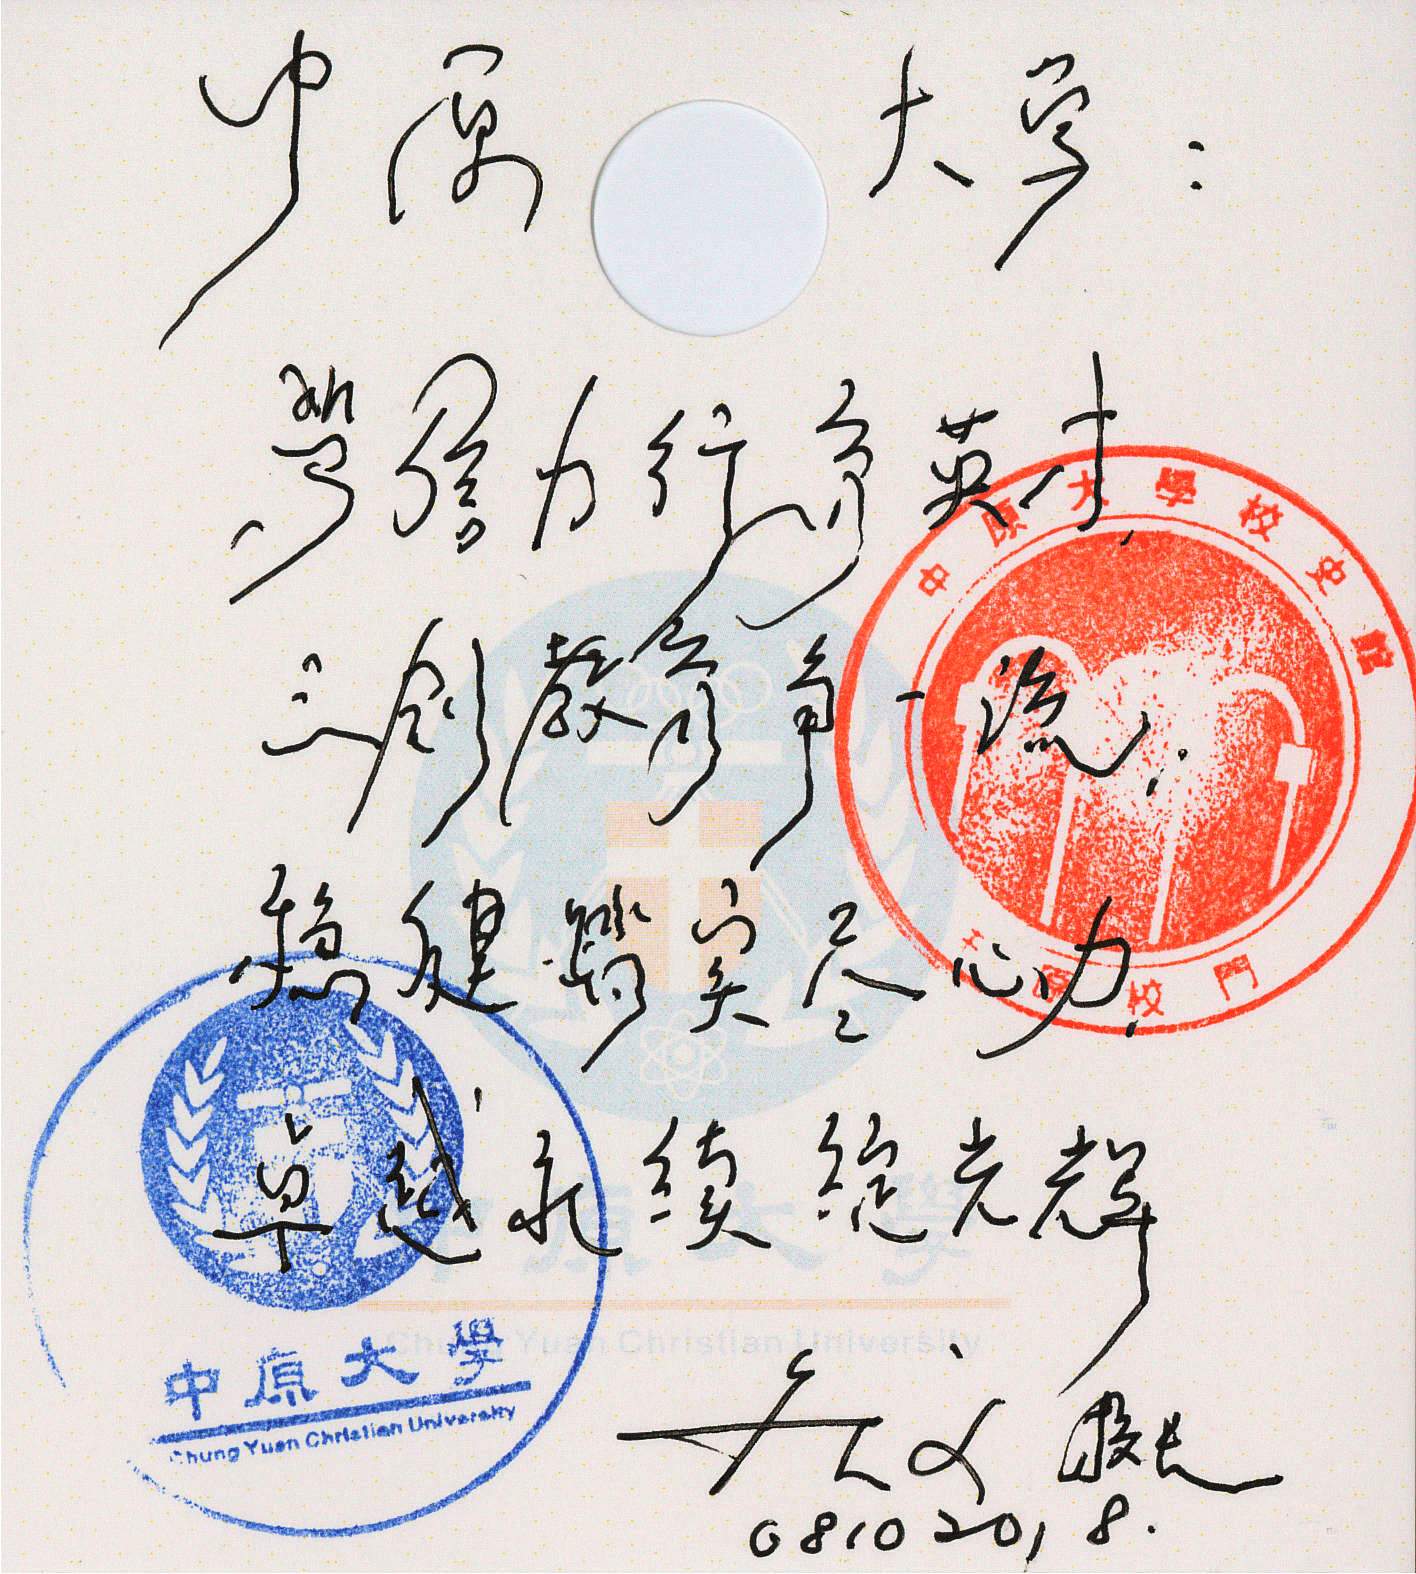 中原大學：
篤信力行育英才，
三創教育爭一流；
穩健踏實盡心力，
卓越永續綻光輝
08102018.
中原大學校史館
中原校門
中原大學
Chung Yuan Christian University
中原大學
Chung Yuan Christian University